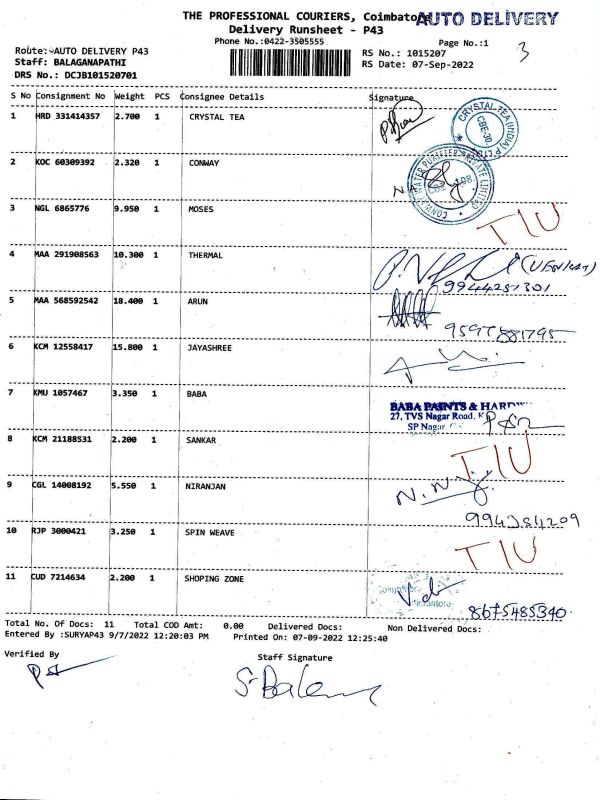 THE PROFESSIONAL COURIERS, Coimbatore
AUTO DELIVERY
Delivery Runsheet - P43
Phone No.:0422-3505555
Page No.:1
3
Route: AUTO DELIVERY P43
RS No.: 1015207
Staff: BALAGANAPATHI
RS Date: 07-Sep-2022
DRS No.: DCJB101520701
S No Consignment No Weight PCS Consignee Details Signature
1 HRD 331414357 2.700 1 CRYSTAL TEA
CRYSTAL TEA (INDIA) P
CBE-30
2 KOC 60309392 2.320 1 CONWAY
WATER PURIFIER PRIVATE LIMITED
3 NGL 6865776 9.950 1 MOSES
TIU
4 MAA 291908563 10.300 1 THERMAL
(VENKAT)
9944251301
5 MAA 568592542 18.400 1 ARUN
6 KCM 12558417 15.800 1 JAYASHREE
7 KMU 1057467 3.350 1 BABA
BABA PAINTS & HARDW
27, TVS Nagar Road,
SP Nagar,
8 KCM 21188531 2.200 1 SANKAR
TIU
9 CGL 14008192 5.550 1 NIRANJAN
10 RJP 3000421 3.250 1 SPIN WEAVE
TIU
11 CUD 7214634 2.200 1 SHOPING ZONE
8675485340
Total No. Of Docs: 11 Total COD Amt: 0.00 Delivered Docs: Non Delivered Docs:
Entered By :SURYAP43 9/7/2022 12:20:03 PM Printed On: 07-09-2022 12:25:40
Verified By Staff Signature